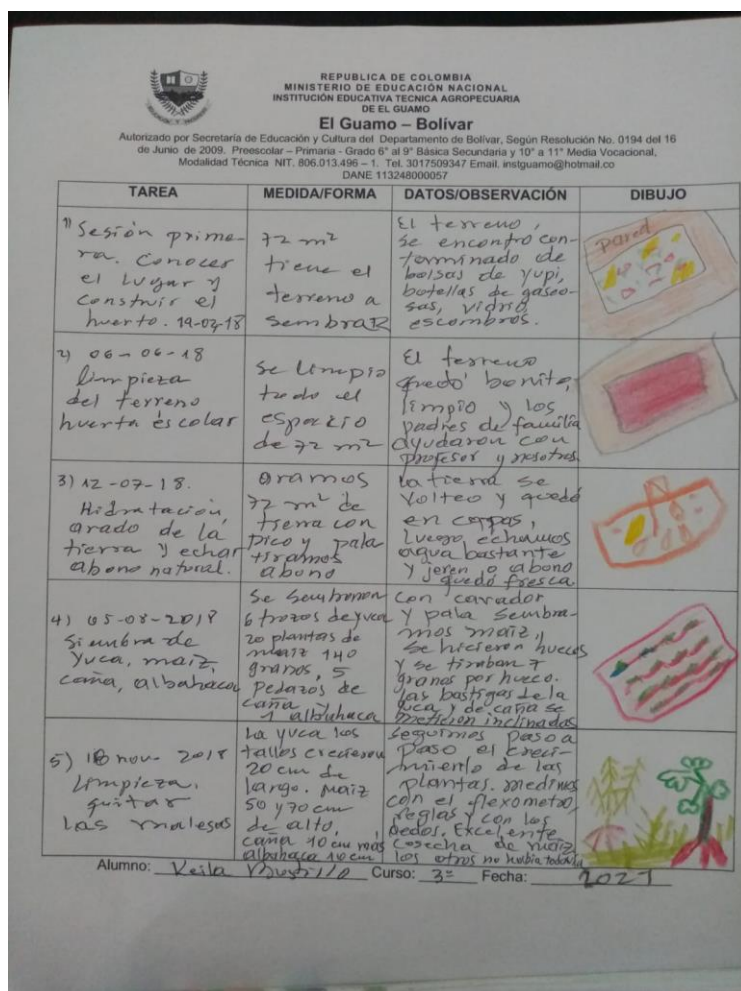 REPUBLICA DE COLOMBIA
MINISTERIO DE EDUCACIÓN NACIONAL
INSTITUCIÓN EDUCATIVA TECNICA AGROPECUARIA
DE EL GUAMO
El Guamo – Bolívar
Autorizado por Secretaría de Educación y Cultura del Departamento de Bolívar, Según Resolución No. 0194 del 16
de Junio de 2009. Preescolar – Primaria - Grado 6° al 9° Básica Secundaria y 10° a 11° Media Vocacional,
Modalidad Técnica NIT. 806.013.496 – 1. Tel. 3017509347 Email. instguamo@hotmail.co
DANE 113248000057
TAREA
MEDIDA/FORMA
DATOS/OBSERVACIÓN
DIBUJO
1) Sesión prime-
ra. Conocer
el lugar y
construir el
huerto. 19-02-18
72 m²
tiene el
terreno a
sembraR
El terreno,
se encontro con-
terminado de
bolsas de yupi,
botellas de gaseo-
sas, vidrio
escombros.
pared
2) 06-06-18
limpieza
del terreno
huerta escolar
Se limpio
todo el
espacio
de 72 m²
El terreno
quedó bonito,
limpio y los
padres de familia
ayudaron con
profesor y nosotros
3) 12-07-18.
Hidratación,
arado de la
tierra y echar
abono natural.
Oramos
72 m² de
tierra con
pico y pala
tiramos
abono
la tierra se
volteo y quedó
en capas,
luego echamos
agua bastante
y jeren o abono
quedó fresca
4) 05-08-2018
Siembra de
Yuca, maiz,
caña, albahaca
Se sembraron
6 trozos de yuca
20 plantas de
maiz 140
granos, 5
pedazos de
caña y
1 albahaca
con cavador
y pala sembra-
mos maiz,
se hicieron huecos
y se tiraban 7
granos por hueco.
las bastigas de la
yuca y de caña se
metieron inclinadas
5) 18 nov- 2018
Limpieza,
quitar
las malesas
La yuca los
tallos crecieron
20 cm de
largo. Maiz
50 y 70 cm
de alto,
caña 10 cm más
albahaca 10 cm
Seguimos paso a
paso el creci-
miento de las
plantas. medimos
con el flexometro,
reglas y con los
dedos. Excelente
cosecha de maiz
los otros no habia todavia
Alumno: Keila Curso: 3° Fecha: 2021